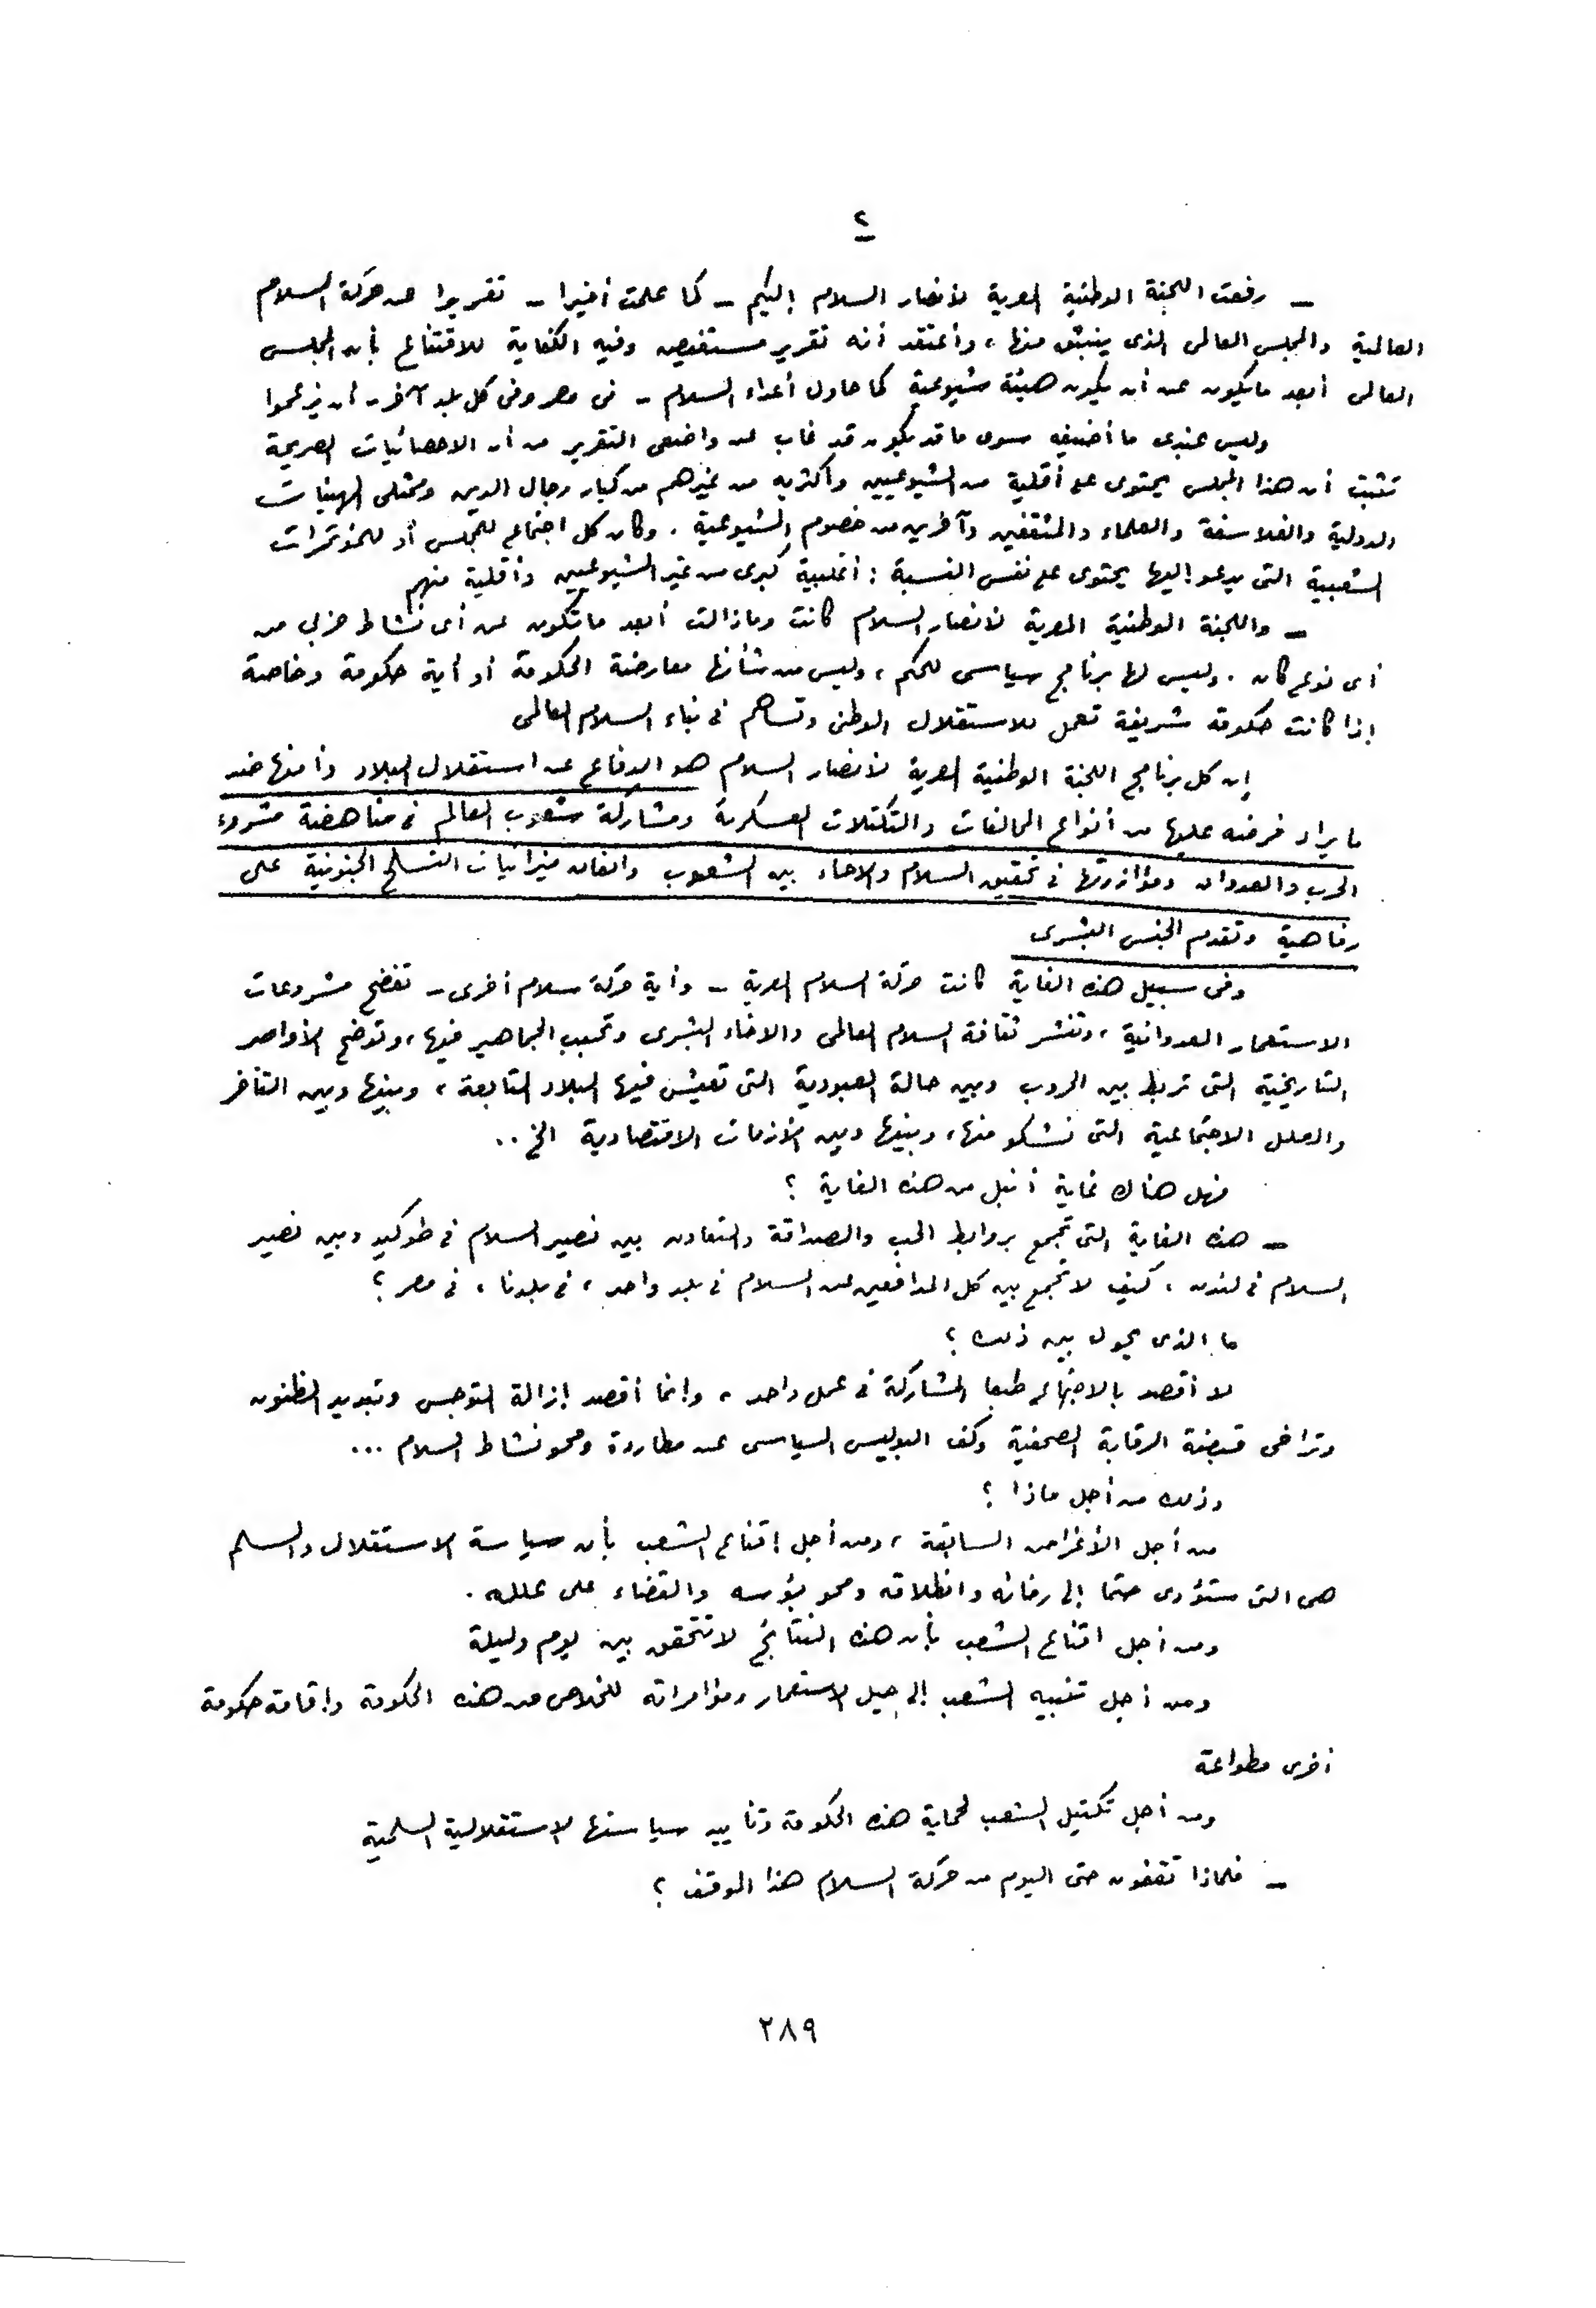 ٢
ـ رفعت اللجنة الوطنية المصرية لأنصار السلام إليكم ـ كما علمت أخيرا ـ تقريرا عن حركة السلام
العالمية والمجلس العالمى الذى ينبثق منها ، وأعتقد أنه تقرير مستفيض وفيه الكفاية للاقتناع بأن المجلس
العالمى أبعد ما يكون عن أن يكون هيئة شيوعية كما حاول أعداء السلام ـ فى مصر وفى كل بلد آخر ـ أن يزعموا
وليس عندى ما أضيفه سوى ما قد يكون قد غاب عن واضعى التقرير من أن الاحصائيات الصريحة
تثبت أن هذا المجلس يحتوى على أقلية من الشيوعيين وأكثرية من غيرهم من كبار رجال الدين وممثلى الهيئات
الدولية والفلاسفة والعلماء والمثقفين وآخرين من خصوم الشيوعية . وكان كل اجتماع للمجلس أو للمؤتمرات
الشعبية التى يدعو إليها يحتوى على نفس النسبة : أغلبية كبرى من غير الشيوعيين وأقلية منهم
ـ واللجنة الوطنية المصرية لأنصار السلام كانت ومازالت أبعد ما تكون عن أى نشاط حزبى من
أى نوع كان . وليس لها برنامج سياسى للحكم ، وليس من شأنها معارضة الحكومة أو أية حكومة وخاصة
إذا كانت حكومة شريفة تعمل للاستقلال الوطنى وتساهم فى بناء السلام العالمى
إن كل برنامج اللجنة الوطنية المصرية لأنصار السلام هو الدفاع عن استقلال البلاد وأمنها ضد
ما يراد فرضه عليها من أنواع المحالفات والتكتلات العسكرية ومشاركة شعوب العالم فى مناهضة مشروع
الحرب والعدوان ومؤازرتها فى تحقيق السلام والاخاء بين الشعوب وانفاق ميزانيات التسلح الجنونية على
رفاهية وتقدم الجنس البشرى
وفى سبيل هذه الغاية كانت حركة السلام المصرية ـ وأية حركة سلام أخرى ـ تفضح مشروعات
الاستعمار العدوانية ، وتنشر ثقافة السلام العالمى والاخاء البشرى وتحبب الجماهير فيها ، وتوضح الأواصر
التاريخية التى تربط بين الحروب وبين حالة العبودية التى تعيش فيها البلاد التابعة ، وبينها وبين التأخر
والعلل الاجتماعية التى نشكو منها ، وبينها وبين الأزمات الاقتصادية الخ ..
فهل هناك غاية أنبل من هذه الغاية ؟
ـ هذه الغاية التى تجمع بروابط الحب والصداقة والتعاون بين نصير السلام فى طوكيو وبين نصير
السلام فى لندن ، كيف لا تجمع بين كل المدافعين عن السلام فى بلد واحد ، فى بلدنا ، فى مصر ؟
ما الذى يحول بين ذلك ؟
لا أقصد بالاجتماع طبعا المشاركة فى عمل واحد ، وإنما أقصد إزالة التوجس وتبديد الظنون
وتراخى قبضة الرقابة الصحفية وكف البوليس السياسى عن مطاردة ومحو نشاط السلام ...
وذلك من أجل ماذا ؟
من أجل الأغراض السابقة ، ومن أجل إقناع الشعب بأن سياسة الاستقلال والسلم
هى التى ستؤدى حتما إلى رخائه وانطلاقه ومحو بؤسه والقضاء على علله .
ومن أجل اقناع الشعب بأن هذه النتائج لا تتحقق بين يوم وليلة
ومن أجل تنبيه الشعب إلى حيل الاستعمار ومؤامراته للخلاص من هذه الحكومة وإقامة حكومة
أخرى مطواعة
ومن أجل تكتيل الشعب لحماية هذه الحكومة وتأييد سياستها الاستقلالية السلمية
ـ فلماذا تقفون حتى اليوم من حركة السلام هذا الموقف ؟
٢٨٩